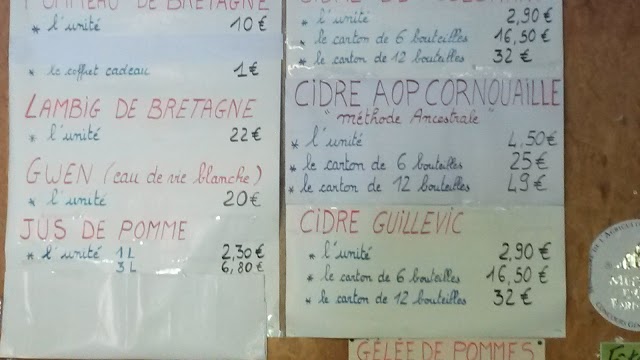 POMMEAU DE BRETAGNE
* l'unité 10€
* le coffret cadeau 1€
LAMBIG DE BRETAGNE
* l'unité 22€
GWEN (eau de vie blanche)
* l'unité 20€
JUS DE POMME
* l'unité 1L 2,30€
3L 6,80€
CIDRE DE
* l'unité 2,90€
* le carton de 6 bouteilles 16,50€
* le carton de 12 bouteilles 32€
CIDRE AOP CORNOUAILLE
"méthode Ancestrale"
* l'unité 4,50€
* le carton de 6 bouteilles 25€
* le carton de 12 bouteilles 49€
CIDRE GUILLEVIC
* l'unité 2,90€
* le carton de 6 bouteilles 16,50€
* le carton de 12 bouteilles 32€
GÊLÉE DE POMMES